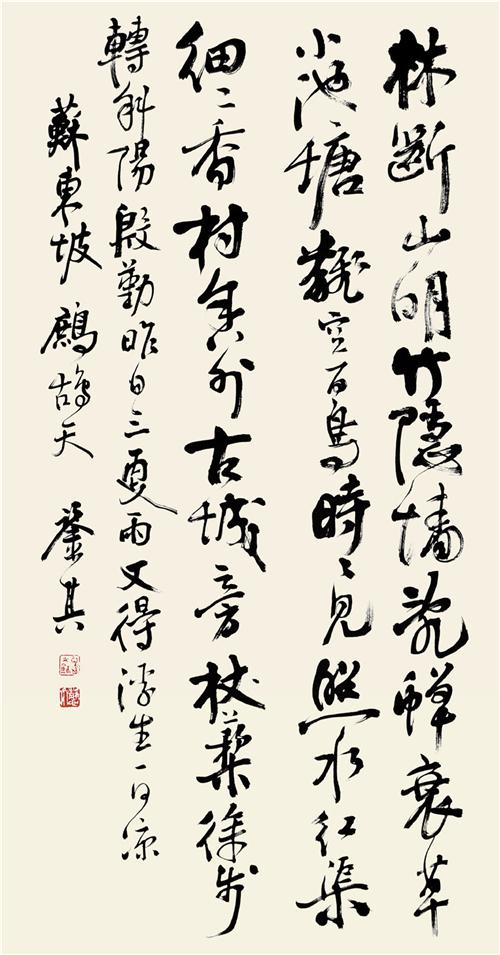 林斷山明竹隱墻亂蟬衰草
小池塘翻空百鳥時〻見照水紅渠
細〻香村舍外古城旁杖藜徐步
轉斜陽殷勤昨日三更雨又得浮生一日凉
蘇東坡鷓鴣天 其